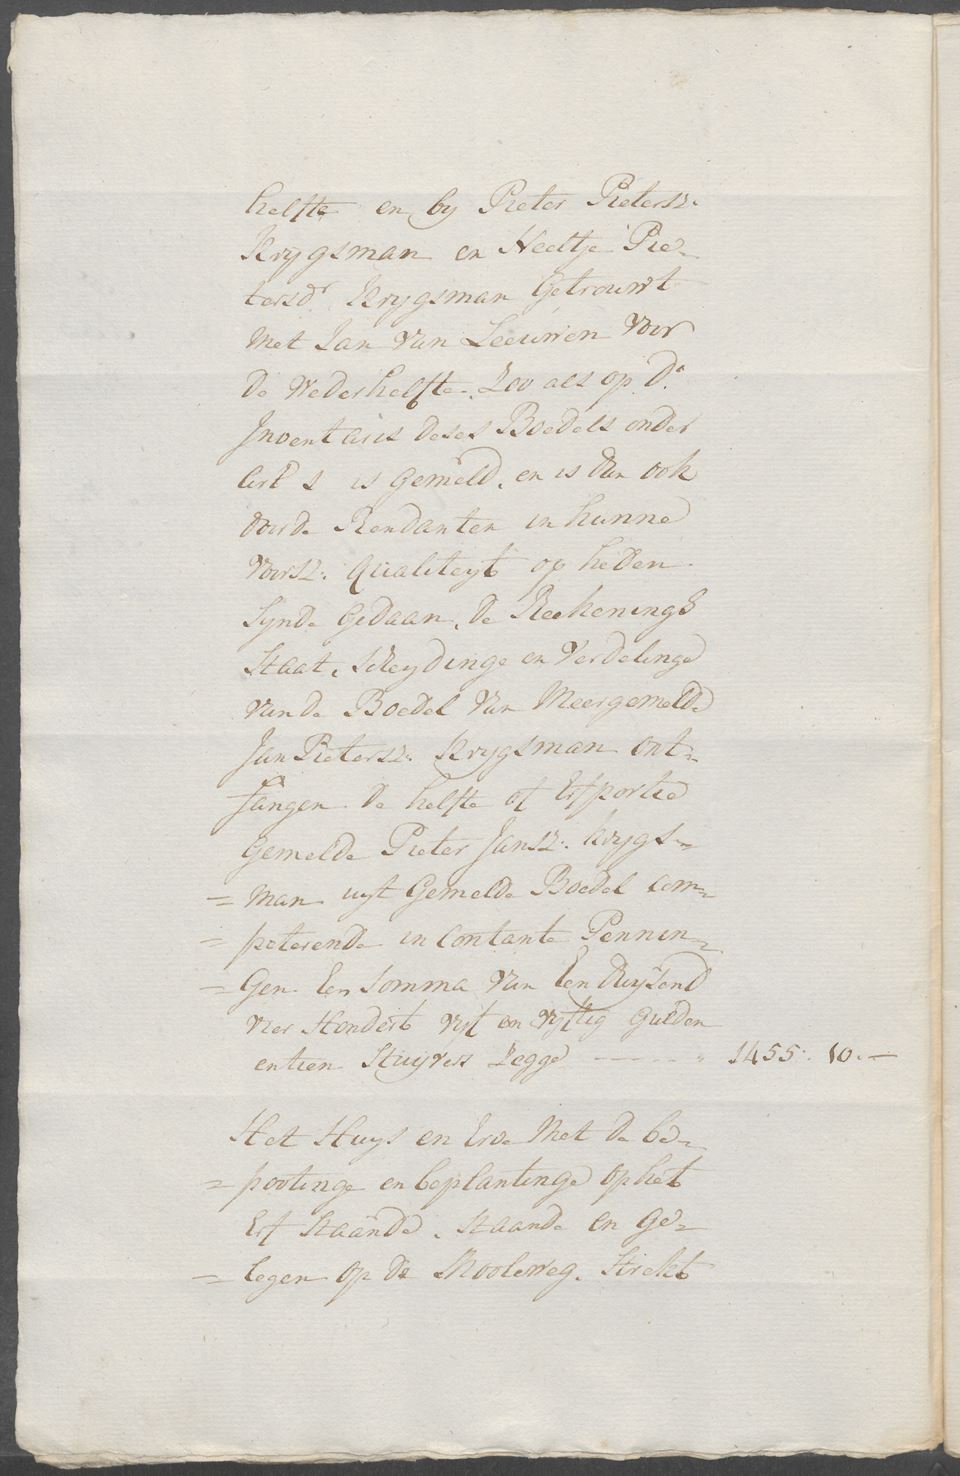 helfte en by Pieter Pietersz:
Krygsman en Neeltje Pie=
tersdr. Krygsman Getrouwt
Met Jan Van Leeuwen Voor
de Wederhelfte. Zoo als op de.
Inventaris deses Boedels onder
is Gemeld. en is dan ook
door de Rendanten in hunne
Voorsz: Qualiteyt op heden
Synde Gedaan, de Reekening
Staat, Scheydinge en Verdelinge
van de Boedel Van Meergemelde
Jan Pietersz: Krygsman ont=
fangen de helfte of Erfportie
Gemelde Pieter Jansz: krygs=
= man uyt Gemelde Boedel com=
= peterende in Contante Pennin=
= Gen Een Somma Van Een duysend
Vier Hondert vyf en vyftig Gulden
en tien Stuyvers Zegge - - - - " 1455: 10. —
Het Huys en Erve Met de be=
= pootinge en beplantinge op het
Erf Staande. Staande en Ge=
= legen op de Moleweg. Strekt